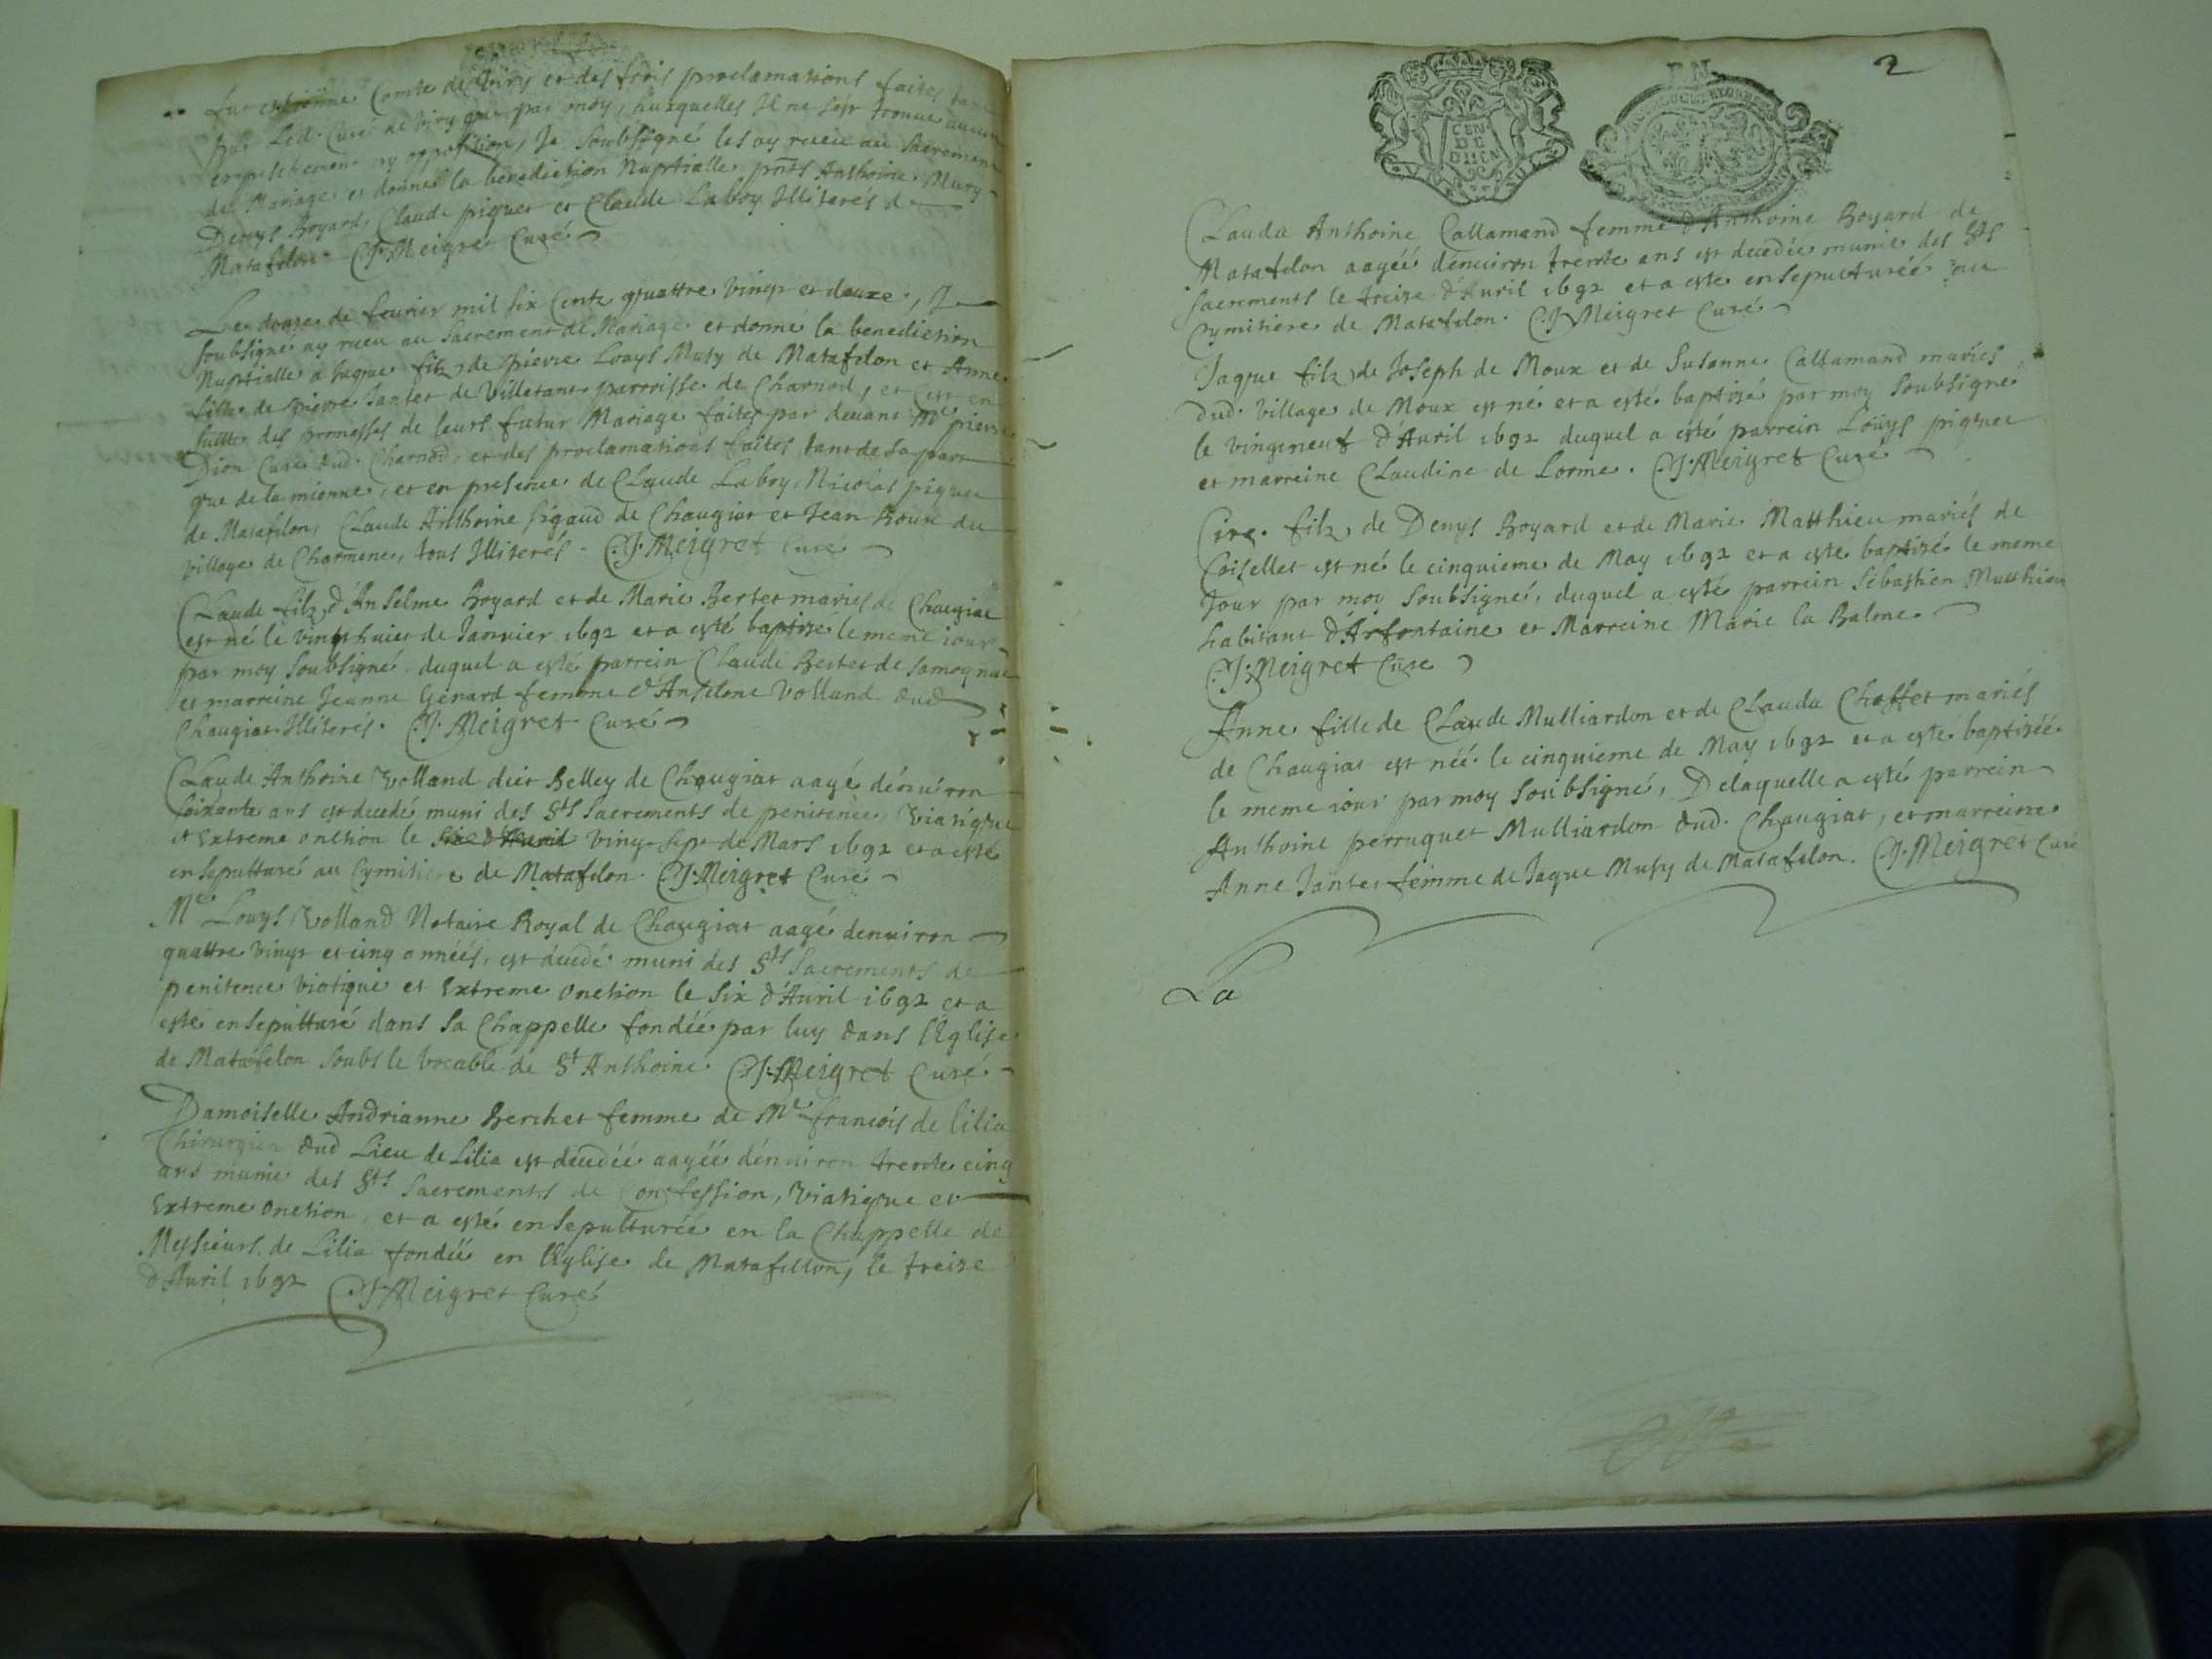 Comte de Viry et des trois proclamations faites tant
par led. Curé de Viry que par moy, auxquelles Il ne sest trouué aucun
empeschement ny opposition, Je soubsigné les ay receu au sacrement
de Mariage et donné la benediction Nuptialle pnts Anthoine Musy
Denys Boyard, Claude piquet et Claude Labry Illiterés de
Matafelon. C.J. Meigret Curé
Le douze de feurier mil six Centz quattre vingt et douze, Je
soubsigné ay receu au Sacrement de Mariage et donné la benediction
Nuptialle a Jaque filz de pierre Louys Musy de Matafelon et Anne
fille de pierre Jantet de Villetant parroisse de Charnod, et C'est en
suitte des promesses de leurs futur Mariage faites par deuant Mre pierre
Dion Curé dud. Charnod, et des proclamations faites tant de sa part
que de la mienne, et en presence de Claude Labry, Nicolas piquet
de Matafelon, Claude Anthoine Sigaud de Chaugiat et Jean Roux du
village de Charmene, tous Illiterés. C.J. Meigret Curé
Claude filz d'Anselme Boyard et de Marie Bertet mariés de Chaugiat
est né le vingt huict de Januier 1692 et a esté baptisé le meme iour
par moy soubsigné duquel a esté parrein Claude Bertet de Samognat
et marreine Jeanne Genard femme d'Anselme Volland dud
Chaugiat Illiterés. C.J. Meigret Curé
Claude Anthoine Volland dict Belley de Chaugiat aagé d'enuiron
soixante ans est decedé muni des Sts Sacrements de penitence, Viatique
et Extreme onction le six d'Auril vingt sept de Mars 1692 et a esté
ensepulturé au Cymitiere de Matafelon. C.J. Meigret Curé
Mre Louys Volland Notaire Royal de Chaugiat aagé denuiron
quattre vingt et cinq années, est decedé muni des Sts Sacrements de
penitence viatique et Extreme onction le six d'Auril 1692 et a
esté ensepulturé dans sa Chappelle fondée par luy dans l'Eglise
de Matafelon soubs le vocable de St Anthoine C.J. Meigret Curé
Damoiselle Andrianne Berchet femme de Mre francois de lilia
Chirurgien dud Lieu de Lilia est decedée aagée d'enuiron trente cinq
ans munie des Sts Sacrements de Confession, Viatique et
Extreme onction, et a esté ensepulturée en la Chappelle de
Messieurs de Lilia fondée en l'Eglise de Matafellon, le treize
d'Auril 1692 C.J. Meigret Curé
2
Clauda Anthoine Callamand femme d'Anthoine Boyard de
Matafelon aagée d'enuiron trente ans est decedée munie des Sts
sacrements le treize d'Auril 1692 et a esté ensepulturée au
Cymitiere de Matafelon. C.J. Meigret Curé
Jaque filz de Joseph de Moux et de Susanne Callamand mariés
dud. village de Moux est né et a esté baptisé par moy soubsigné
le vingtneuf d'Auril 1692 duquel a esté parrein Loüys piquet
et marreine Claudine de Lorme. C.J. Meigret Curé
filz de Denys Boyard et de Marie Matthieu mariés de
Coisellet est né le cinquieme de May 1692 et a esté baptisé le meme
Jour par moy soubsigné, duquel a esté parrein Sebastien Matthieu
habitant d'Arfontaine et Marreine Marie la Balme.
C.J. Meigret Curé
Anne fille de Claude Mulliardon et de Clauda Choffet mariés
de Chaugiat est née le cinquieme de May 1692 et a esté baptisée
le meme iour par moy soubsigné, Delaquelle a esté parrein
Anthoine perruquet Mulliardon dud. Chaugiat, et marreine
Anne Jantet femme de Jaque Musy de Matafelon. C.J. Meigret Curé
La